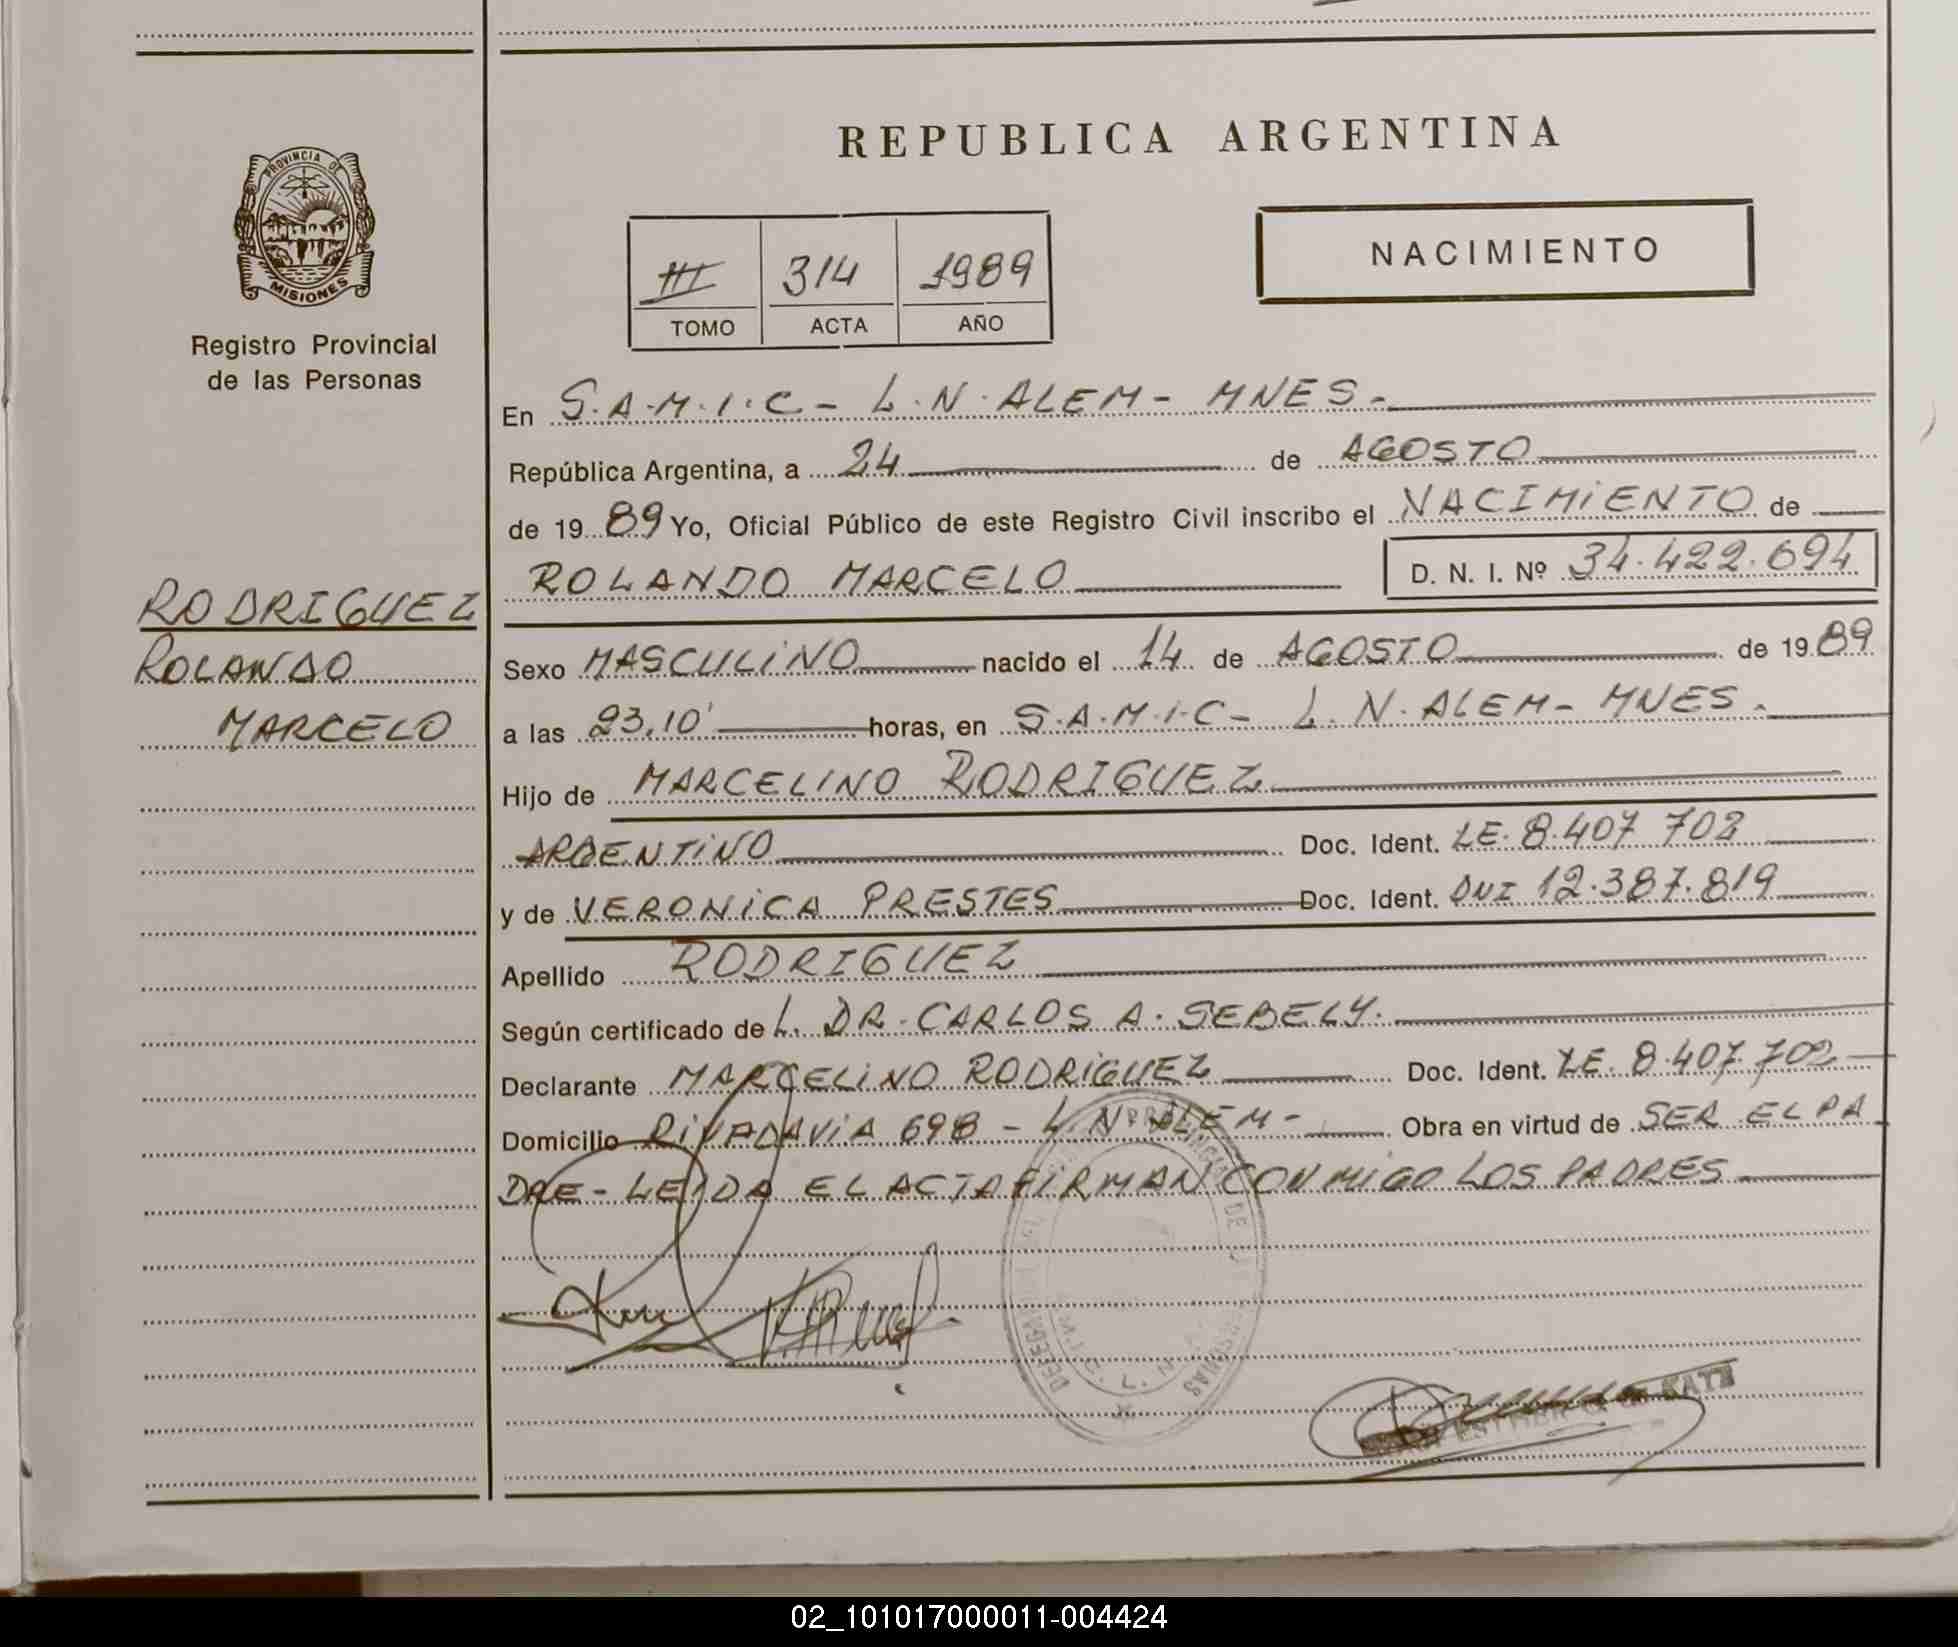 REPUBLICA ARGENTINA
PROVINCIA DE
MISIONES
Registro Provincial
de las Personas
III 314 1989
TOMO ACTA AÑO
NACIMIENTO
En S.A.M.I.C - L.N.ALEM - MNES.-
República Argentina, a 24 de AGOSTO
de 19 89 Yo, Oficial Público de este Registro Civil inscribo el NACIMIENTO de
ROLANDO MARCELO D. N. I. Nº 34.422.694
RODRIGUEZ
ROLANDO
MARCELO
Sexo MASCULINO nacido el 14 de AGOSTO de 19 89
a las 23,10' horas, en S.A.M.I.C - L.N.ALEM - MNES.
Hijo de MARCELINO RODRIGUEZ
ARGENTINO Doc. Ident. LE. 8.407 702
y de VERONICA PRESTES Doc. Ident. DNI 12.387.819
Apellido RODRIGUEZ
Según certificado de L. DR. CARLOS A. SEBELY.
Declarante MARCELINO RODRIGUEZ Doc. Ident. LE. 8.407.702
Domicilio RIVADAVIA 698 - L.N.ALEM - Obra en virtud de SER EL PA
DRE - LEIDA EL ACTA FIRMAN CONMIGO LOS PADRES
02_101017000011-004424